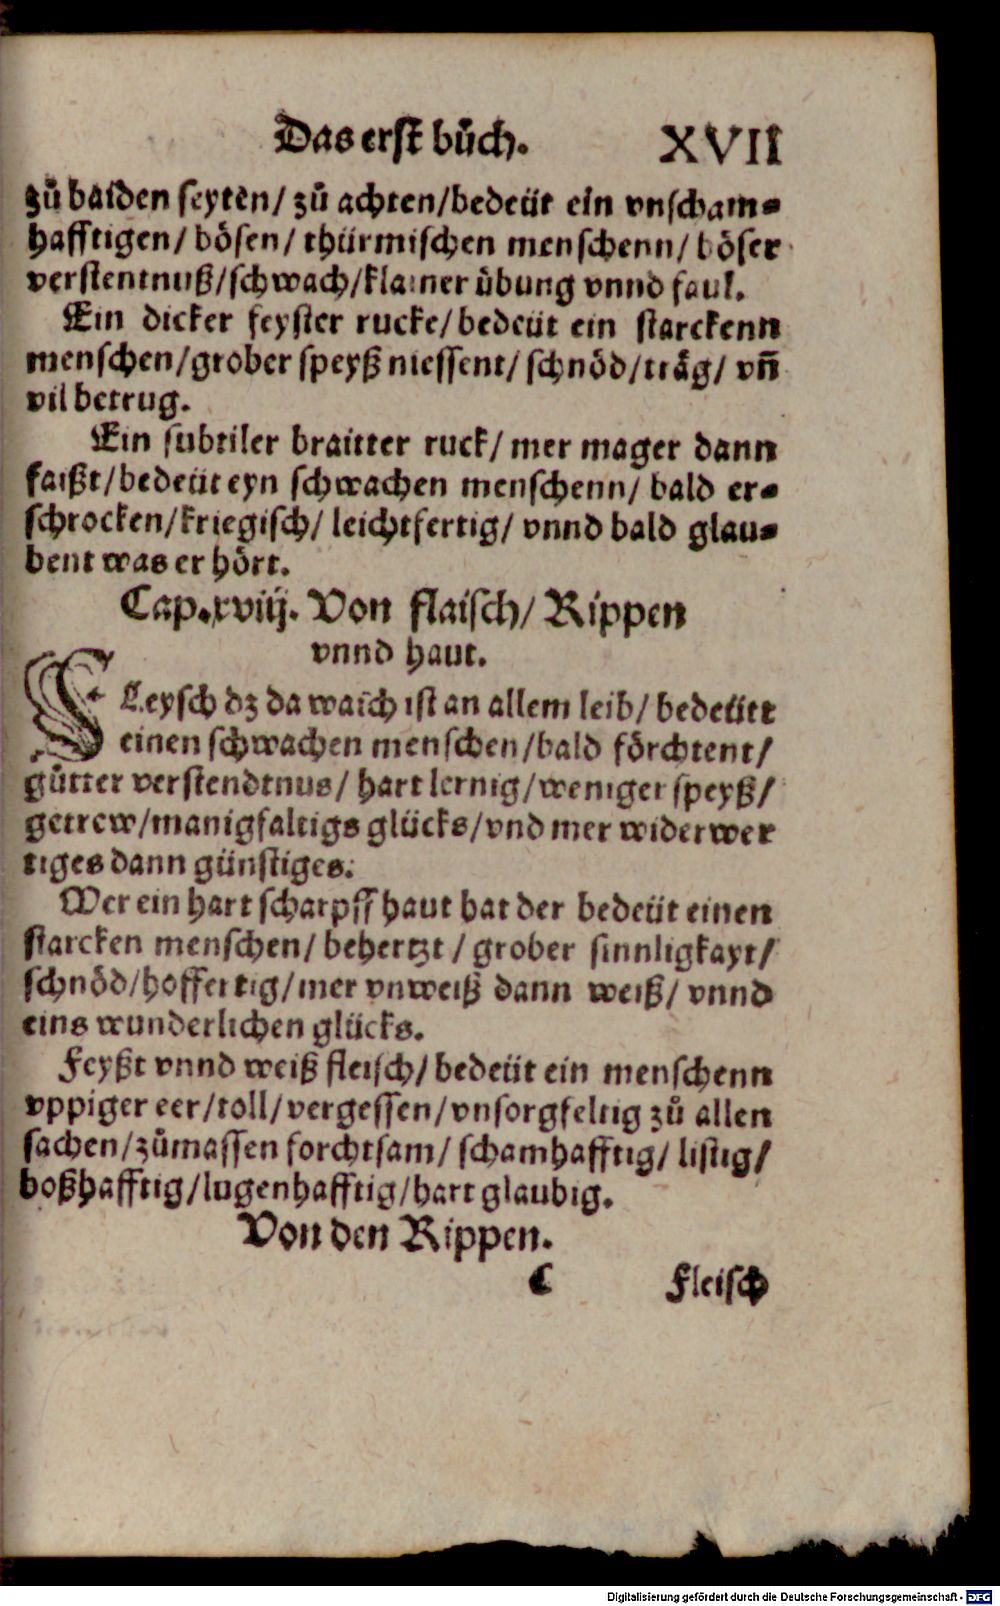 Das erst bůch. XVII
zů baiden seyten/ zů achten/bedeüt ein vnscham⸗
hafftigen/ bösen/ thürmischen menschenn/ böser
verstentnuß/schwach/klainer übung vnnd faul.
Ein dicker feyster rucke/bedeüt ein starckenn
menschen/grober speyß niessent/ schnöd/träg/ vñ
vil betrug.
Ein subtiler braitter ruck/ mer mager dann
faißt/bedeüt eyn schwachen menschenn/ bald er⸗
schrocken/kriegisch/ leichtfertig/ vnnd bald glau⸗
bent was er hört.
Cap.xviij. Von flaisch/ Rippen
vnnd haut.
FLeysch dz da waich ist an allem leib/ bedeütt
einen schwachen menschen/bald förchtent/
gůtter verstendtnus/ hart lernig/weniger speyß/
getrew/manigfaltigs glücks/vnd mer widerwer
tiges dann günstiges.
Wer ein hart scharpff haut hat der bedeüt einen
starcken menschen/ behertzt / grober sinnligkayt/
schnöd/hoffertig/mer vnweiß dann weiß/ vnnd
eins wunderlichen glücks.
Feyßt vnnd weiß fleisch/ bedeüt ein menschenn
vppiger eer/toll/vergessen/vnsorgfeltig zů allen
sachen/zůmassen forchtsam/ schamhafftig/ listig/
boßhafftig/lugenhafftig/hart glaubig.
Von den Rippen.
C Fleisch
Digitalisierung gefördert durch die Deutsche Forschungsgemeinschaft - DFG